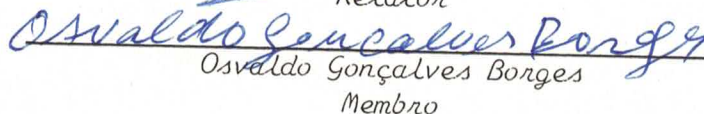 Relator
Osvaldo Gonçalves Borges
Osvaldo Gonçalves Borges
Membro